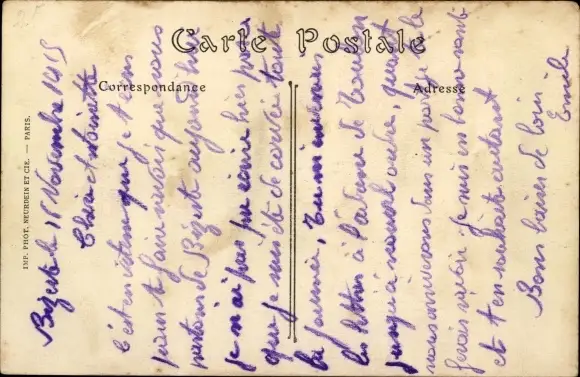 Carte Postale
Correspondance
Adresse
IMP. PHOT. NEURDEIN ET CIE. — PARIS.
Bizerte le 18 Novembre 1915
Chère Antoinette
C'est en vitesse que je t'ecris
pour te faire savoir que nous
partons de Bizerte aujourd'hui
je n'ai pas pu écrire hier parce
que je suis été de corvée toute
la journée, Tu m'enverras
les lettres à l'adresse de Toulon
jusqu'à nouvel ordre, quand
nous arriverons dans un port je te le
ferais savoir je suis en bonne santé
et t'en souhaite autant
Bons baisers de loin
Emile